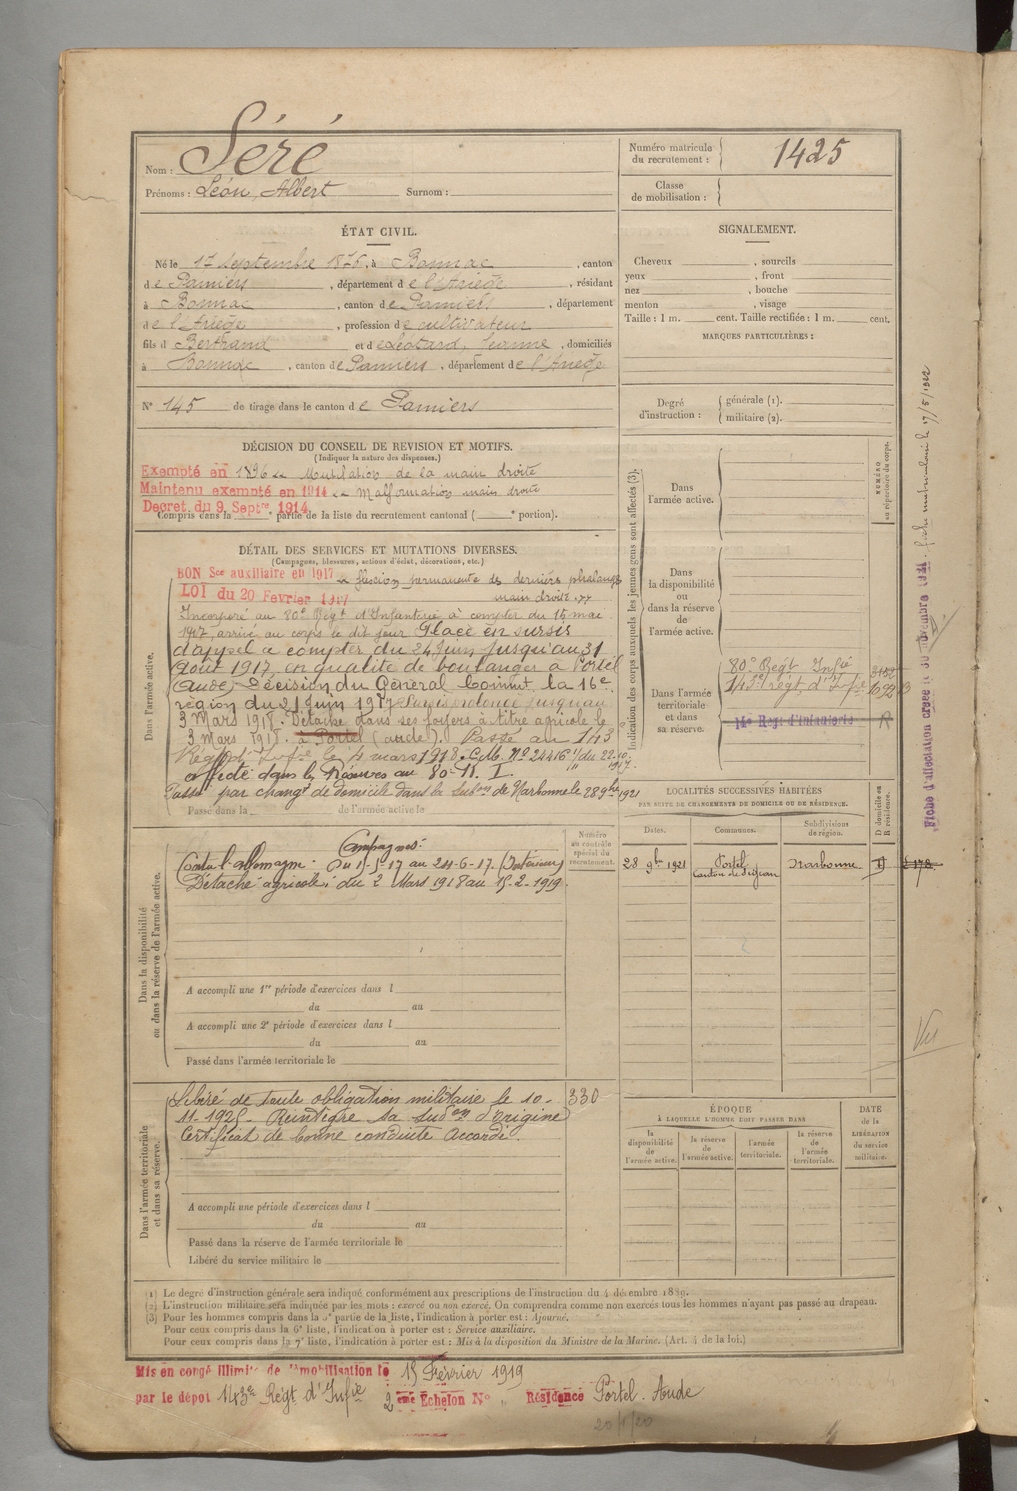 Nom : Séré
Prénoms : Léon, Albert Surnom :
Numéro matricule
du recrutement : 1425
Classe
de mobilisation :
ÉTAT CIVIL.
Né le 17 Septembre 1876, à Bonnac, canton
de Pamiers, département de l'Ariège, résidant
à Bonnac, canton de Pamiers, département
de l'Ariège, profession de cultivateur
fils d Bertrand et de Léotard, Jeanne, domiciliés
à Bonnac, canton de Pamiers, département de l'Ariège
N° 145 de tirage dans le canton de Pamiers
SIGNALEMENT.
Cheveux , sourcils
yeux , front
nez , bouche
menton , visage
Taille : 1 m. cent. Taille rectifiée : 1 m. cent.
MARQUES PARTICULIÈRES :
Degré
d'instruction :
générale (1).
militaire (2).
DÉCISION DU CONSEIL DE REVISION ET MOTIFS.
(Indiquer la nature des dispenses.)
Exempté en 1896 Mutilation de la main droite
Maintenu exempté en 1914 Malformation main droite
Decret du 9 Septre 1914
Compris dans la e partie de la liste du recrutement cantonal ( e portion).
DÉTAIL DES SERVICES ET MUTATIONS DIVERSES.
(Campagnes, blessures, actions d'éclat, décorations, etc.)
BON Sce auxiliaire en 1917 flexion permanente des dernières phalanges
LOI du 20 Fevrier 1917 main droite
Incorporé au 80e Régt d'Infanterie à compter du 15 mai
1917, arrivé au corps le dit jour Placé en sursis
d'appel à compter du 24 Juin jusqu'au 31
Août 1917 en qualité de boulanger à Portel
(Aude) Décision du Général Commt la 16e
région du 21 Juin 1917 Sursis prolongé jusqu'au
3 Mars 1918. Détaché dans ses foyers à titre agricole le
3 Mars 1918. à Portel (aude). Passé au 143
Régt d'Infie le 4 mars 1918. C.M. N° 24416 1/11 du 22-10-1917
affecté dans les Réserves au 80e R. I.
Passé par changt de domicile dans la Subon de Narbonne le 28 9bre 1921
Passé dans la de l'armée active le
Dans l'armée active.
Indication des corps auxquels les jeunes gens sont affectés (3).
NUMÉRO
au répertoire du corps.
Dans
l'armée active.
Dans
la disponibilité
ou
dans la réserve
de
l'armée active.
Dans l'armée
territoriale
et dans
sa réserve.
80e Régt Infie
143e régt d'Infie
Regt d'Infanterie
Fiche d'affectation créée le 30 novembre 1921. fiche matricule le 17/5/1922
Campagnes:
Contre l'allemagne. Du 15-5-17 au 24-6-17. (Intérieur)
Détaché agricole, du 2 Mars 1918 au 15-2-1919.
Numéro
au contrôle
spécial du
recrutement.
Dans la disponibilité
ou dans la réserve de l'armée active.
A accompli une 1re période d'exercices dans l
du au
A accompli une 2e période d'exercices dans l
du au
Passé dans l'armée territoriale le
LOCALITÉS SUCCESSIVES HABITÉES
PAR SUITE DE CHANGEMENTS DE DOMICILE OU DE RÉSIDENCE.
D domicile ou
R résidence.
Dates. Communes. Subdivisions
de région.
28 9bre 1921 Portel
Canton de Sigean Narbonne D
Vu
Libéré de toute obligation militaire le 10-
11-1925 - Réintègre sa subon d'origine
Certificat de bonne conduite Accordé.
330
Dans l'armée territoriale
et dans sa réserve.
A accompli une période d'exercices dans l
du au
Passé dans la réserve de l'armée territoriale le
Libéré du service militaire le
ÉPOQUE
À LAQUELLE L'HOMME DOIT PASSER DANS
la
disponibilité
de
l'armée active.
la réserve
de
l'armée active.
l'armée
territoriale.
la réserve
de
l'armée
territoriale.
DATE
de la
LIBÉRATION
du service
militaire.
(1) Le degré d'instruction générale sera indiqué conformément aux prescriptions de l'instruction du 4 décembre 1889.
(2) L'instruction militaire sera indiquée par les mots : exercé ou non exercé. On comprendra comme non exercés tous les hommes n'ayant pas passé au drapeau.
(3) Pour les hommes compris dans la 5e partie de la liste, l'indication à porter est : Ajourné.
Pour ceux compris dans la 6e liste, l'indication à porter est : Service auxiliaire.
Pour ceux compris dans la 7e liste, l'indication à porter est : Mis à la disposition du Ministre de la Marine. (Art. 4 de la loi.)
Mis en congé illimité de démobilisation le 15 Février 1919
par le dépot 143e Régt d'Infie 2 eme Echelon N° " Résidence Portel. Aude